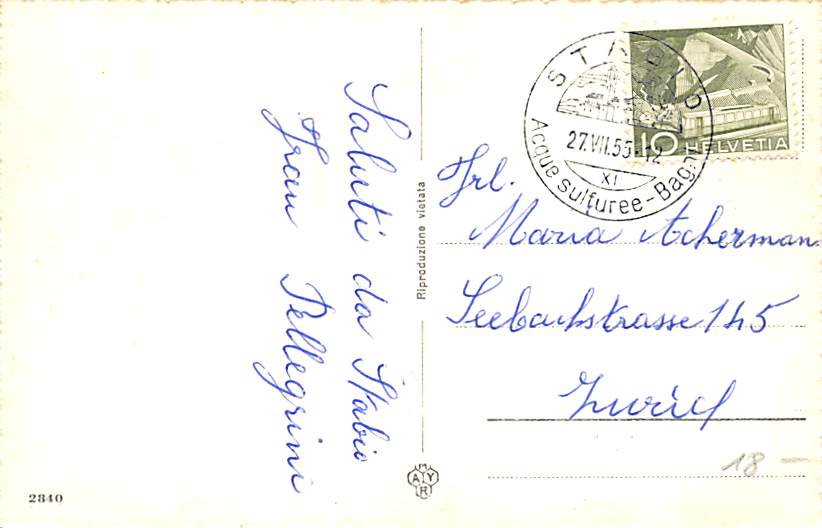 Saluti da Stabio
Frau Pellegrini
Riproduzione vietata
MAYR
2840
STABIO
27.VII.55-12
XI
Acque sulfuree-Bagni
10 HELVETIA
Frl.
Maria Acherman
Seebachstrasse 145
Zürich
18 –